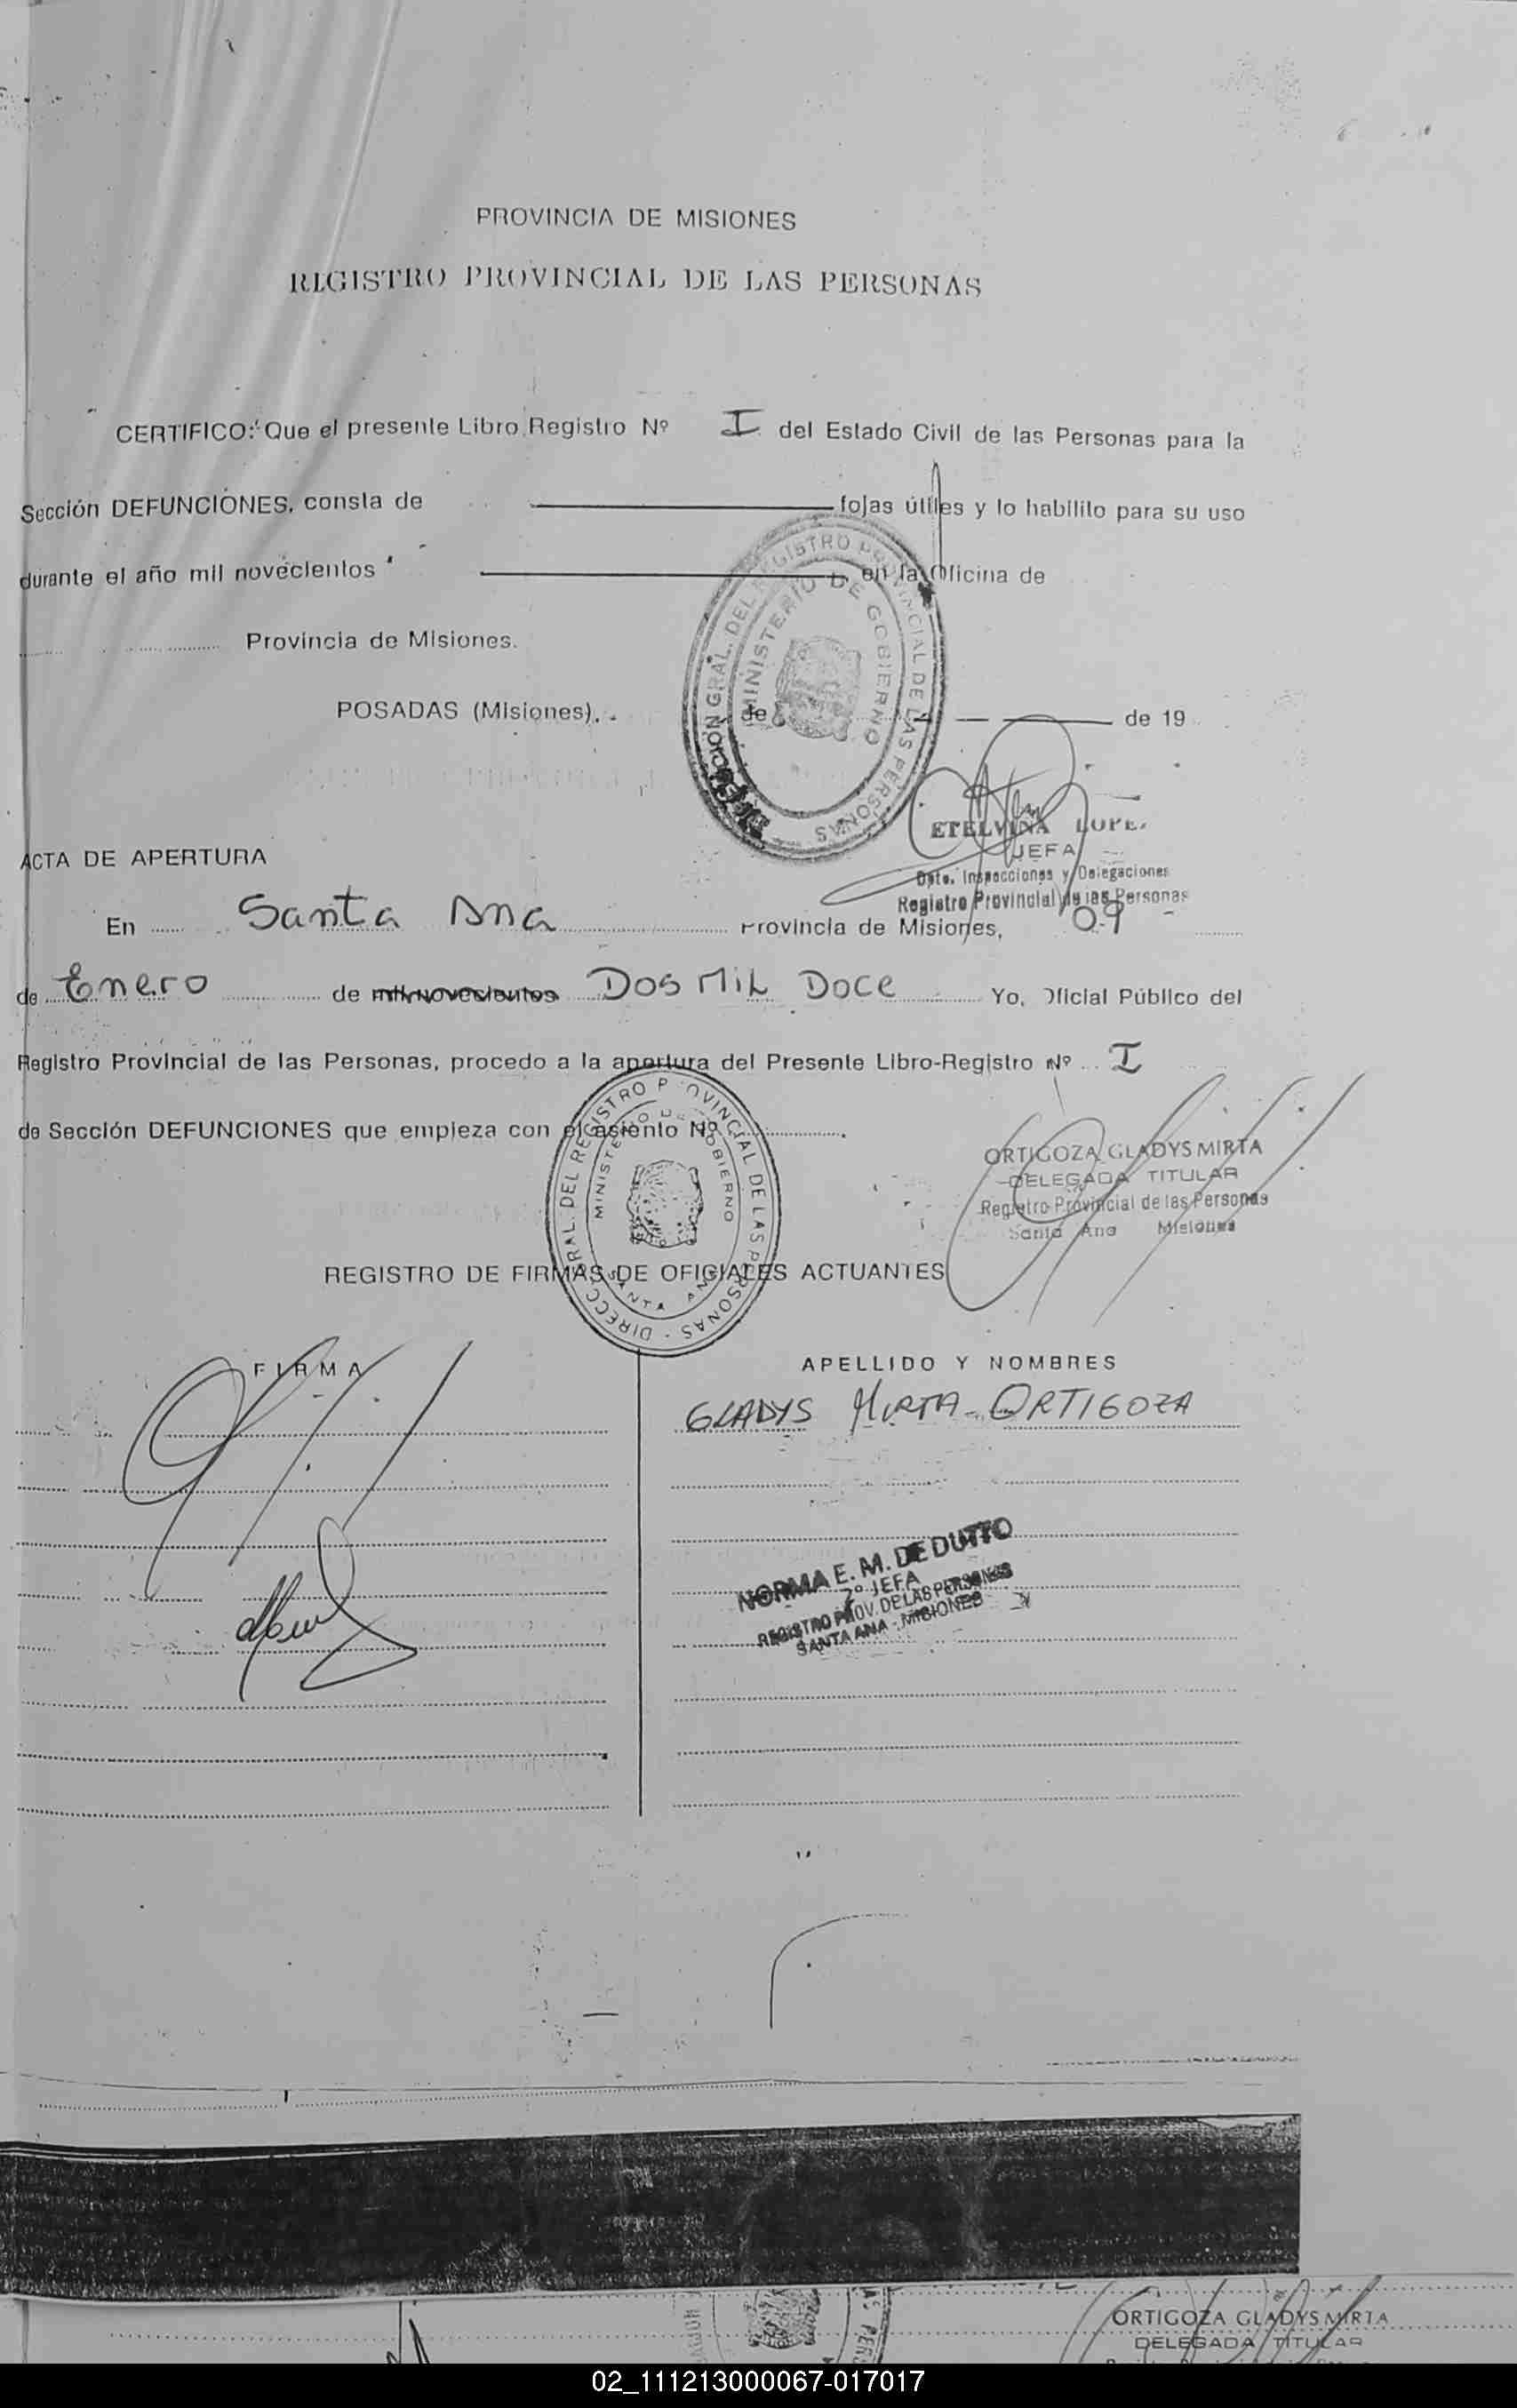 PROVINCIA DE MISIONES
REGISTRO PROVINCIAL DE LAS PERSONAS
CERTIFICO: Que el presente Libro Registro Nº I del Estado Civil de las Personas para la
Sección DEFUNCIONES, consta de fojas útiles y lo habilito para su uso
durante el año mil novecientos en la Oficina de
Provincia de Misiones.
POSADAS (Misiones), de de 19
DIRECCIÓN GRAL. DEL REGISTRO PROVINCIAL DE LAS PERSONAS
MINISTERIO DE GOBIERNO
ETELVINA LOPE
JEFA
Dpto. Inspecciones y Delegaciones
Registro Provincial de las Personas
ACTA DE APERTURA
En Santa Ana Provincia de Misiones, 09
de Enero de mil novecientos Dos Mil Doce Yo, Oficial Público del
Registro Provincial de las Personas, procedo a la apertura del Presente Libro-Registro Nº I
de Sección DEFUNCIONES que empieza con el asiento Nº
DIRECC GRAL. DEL REGISTRO PROVINCIAL DE LAS PERSONAS
MINISTERIO DE GOBIERNO
SANTA ANA
ORTIGOZA GLADYS MIRTA
DELEGADA TITULAR
Registro Provincial de las Personas
Santa Ana Misiones
REGISTRO DE FIRMAS DE OFICIALES ACTUANTES
FIRMA
APELLIDO Y NOMBRES
GLADYS MIRTA ORTIGOZA
NORMA E. M. DE DUTTO
2º JEFA
REGISTRO PROV. DE LAS PERSONAS
SANTA ANA - MISIONES
ORTIGOZA GLADYS MIRTA
DELEGADA TITULAR
02_111213000067-017017